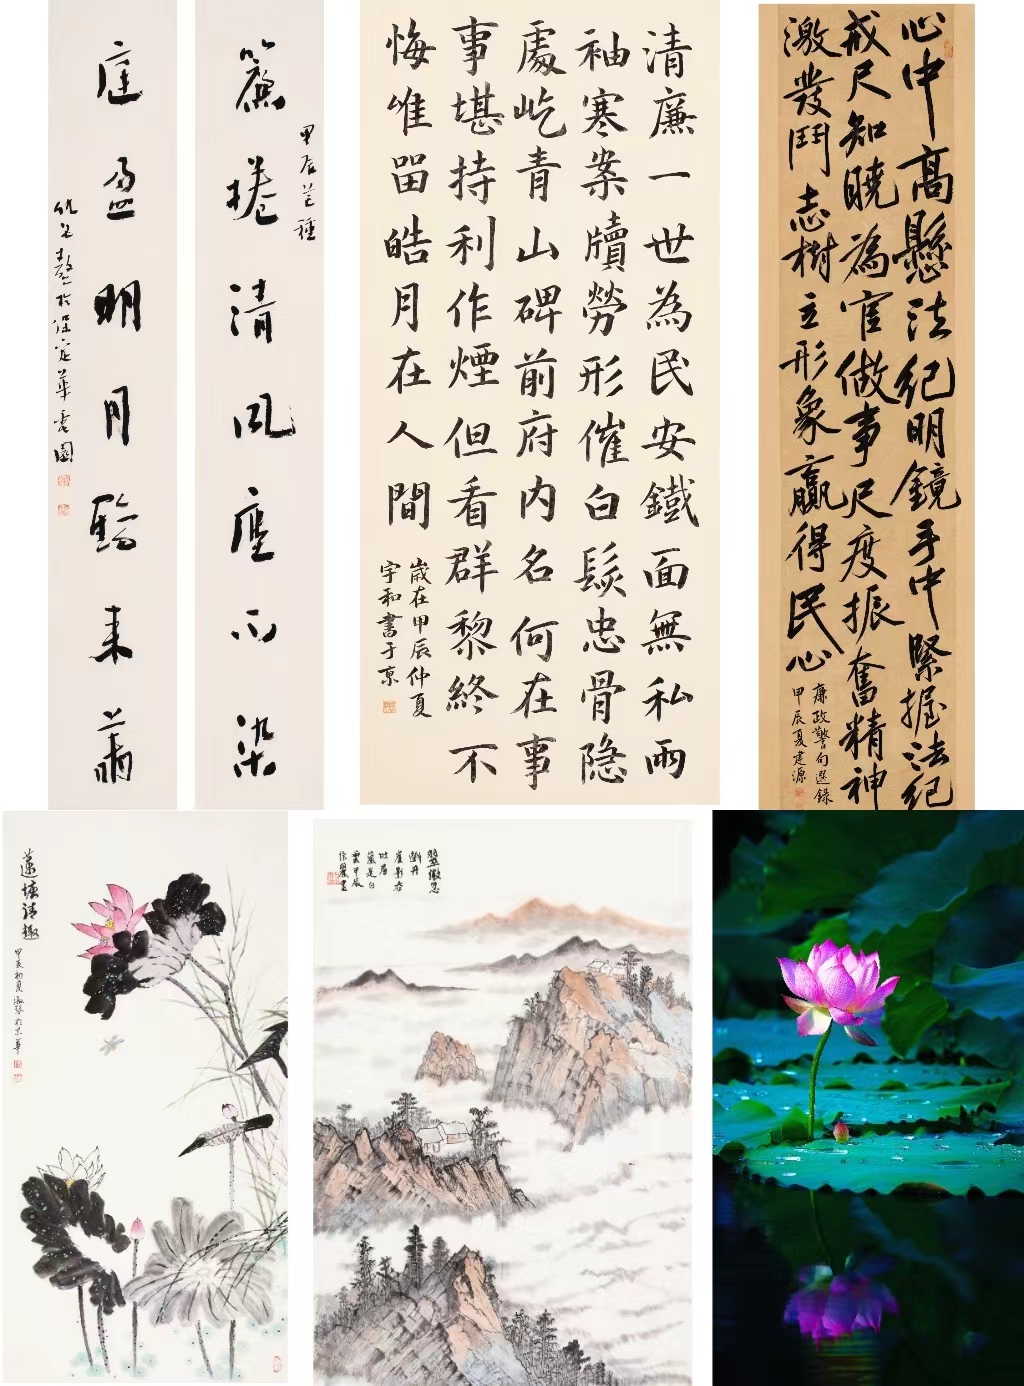 簾捲清風塵不染
甲辰芒種
庭盈明月來
清廉一世為民安鐵面無私兩
袖寒案牘勞形催白髮忠骨隐
處屹青山碑前府内名何在事
事堪持利作煙但看群黎終不
悔唯留皓月在人間
歲在甲辰仲夏
宇和書于京
心中高懸法紀明鏡手中緊握法紀
戒尺知曉為官做事尺度振奮精神
激發鬥志樹立形象贏得民心
廉政警句選錄
甲辰夏建源
蓮塘清趣
甲辰初夏於京華